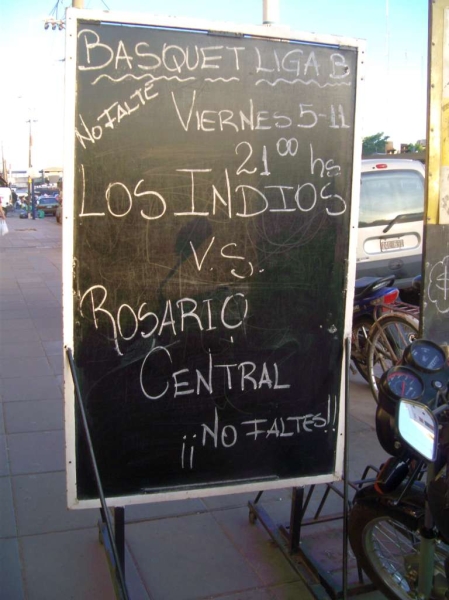 BASQUET LIGA B
NO FALTE
VIERNES 5-11
21⁰⁰ hs
LOS INDIOS
V.S.
ROSARIO
CENTRAL
¡¡NO FALTES!!